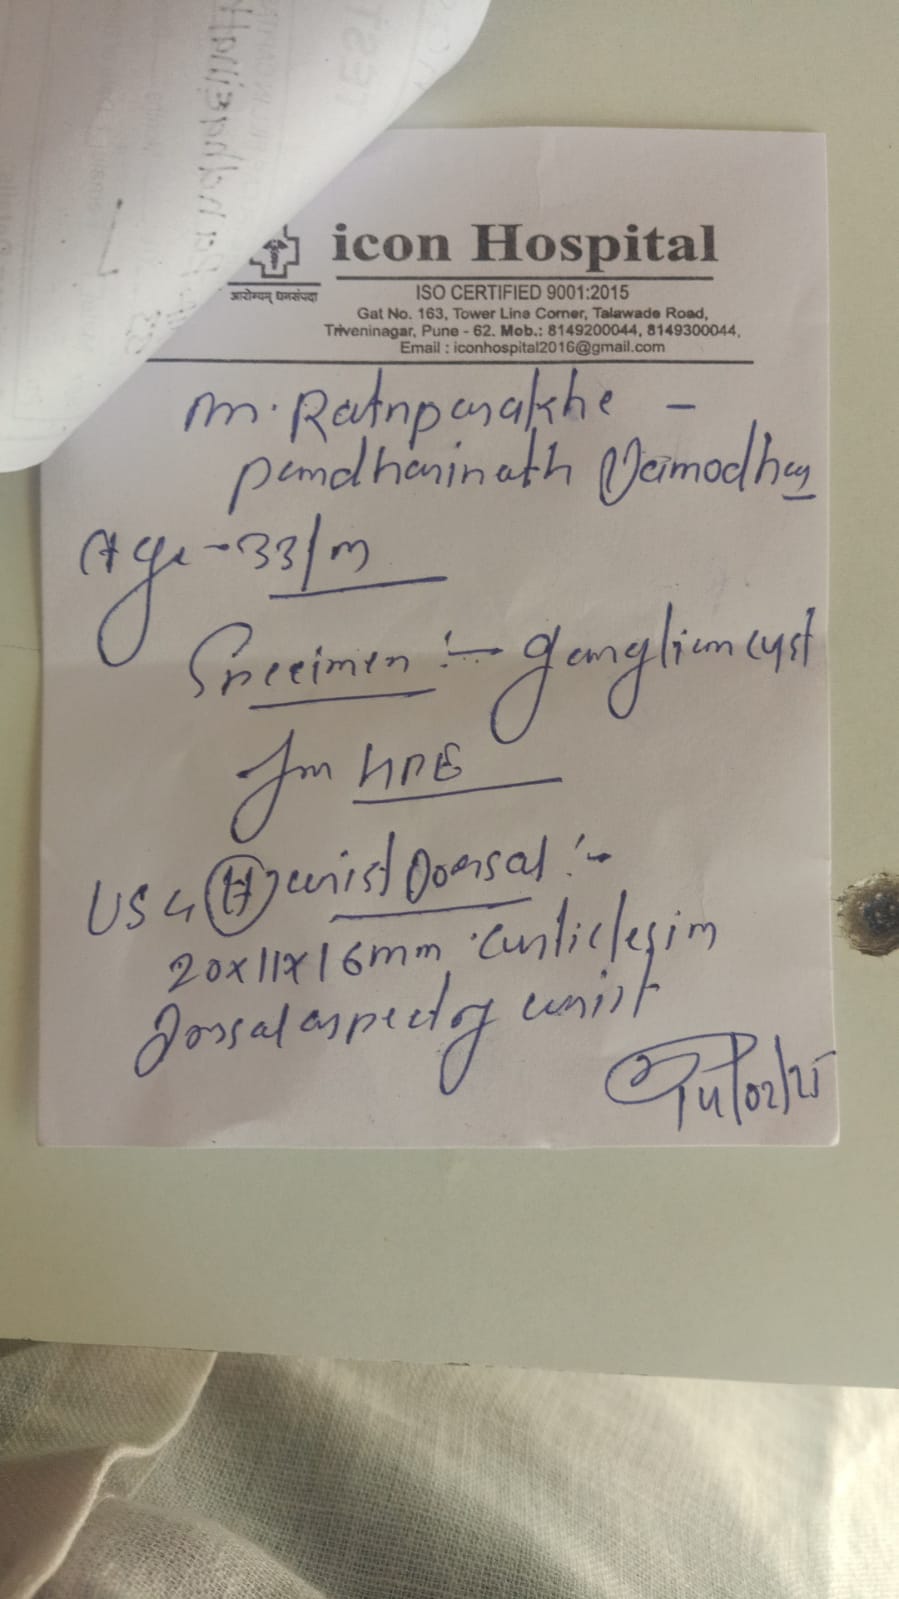 icon Hospital
आरोग्यम् धनसंपदा
ISO CERTIFIED 9001:2015
Gat No. 163, Tower Line Corner, Talawade Road,
Triveninagar, Pune - 62. Mob.: 8149200044, 8149300044,
Email : iconhospital2016@gmail.com
Ratnparakhe -
pandharinath Damodhar
Age - 33/m
Specimen :- ganglion cyst
for HPE
USG wrist Dorsal :-
20x11x16mm cystic lesion
Dorsal aspect of wrist
/02/25
TEST